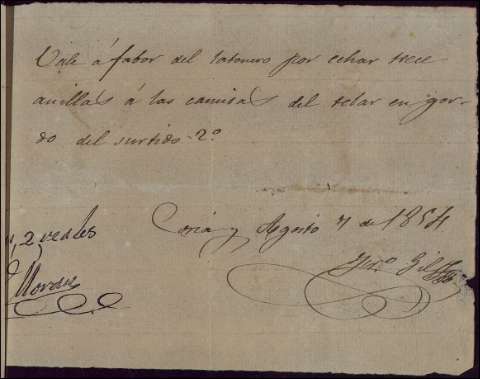 Vale á fabor del latonero por echar trece
anillas á las camisas del telar en gor-
do del surtido 2º
Coria y Agosto 4 de 1854
2 reales
Gil
Moran